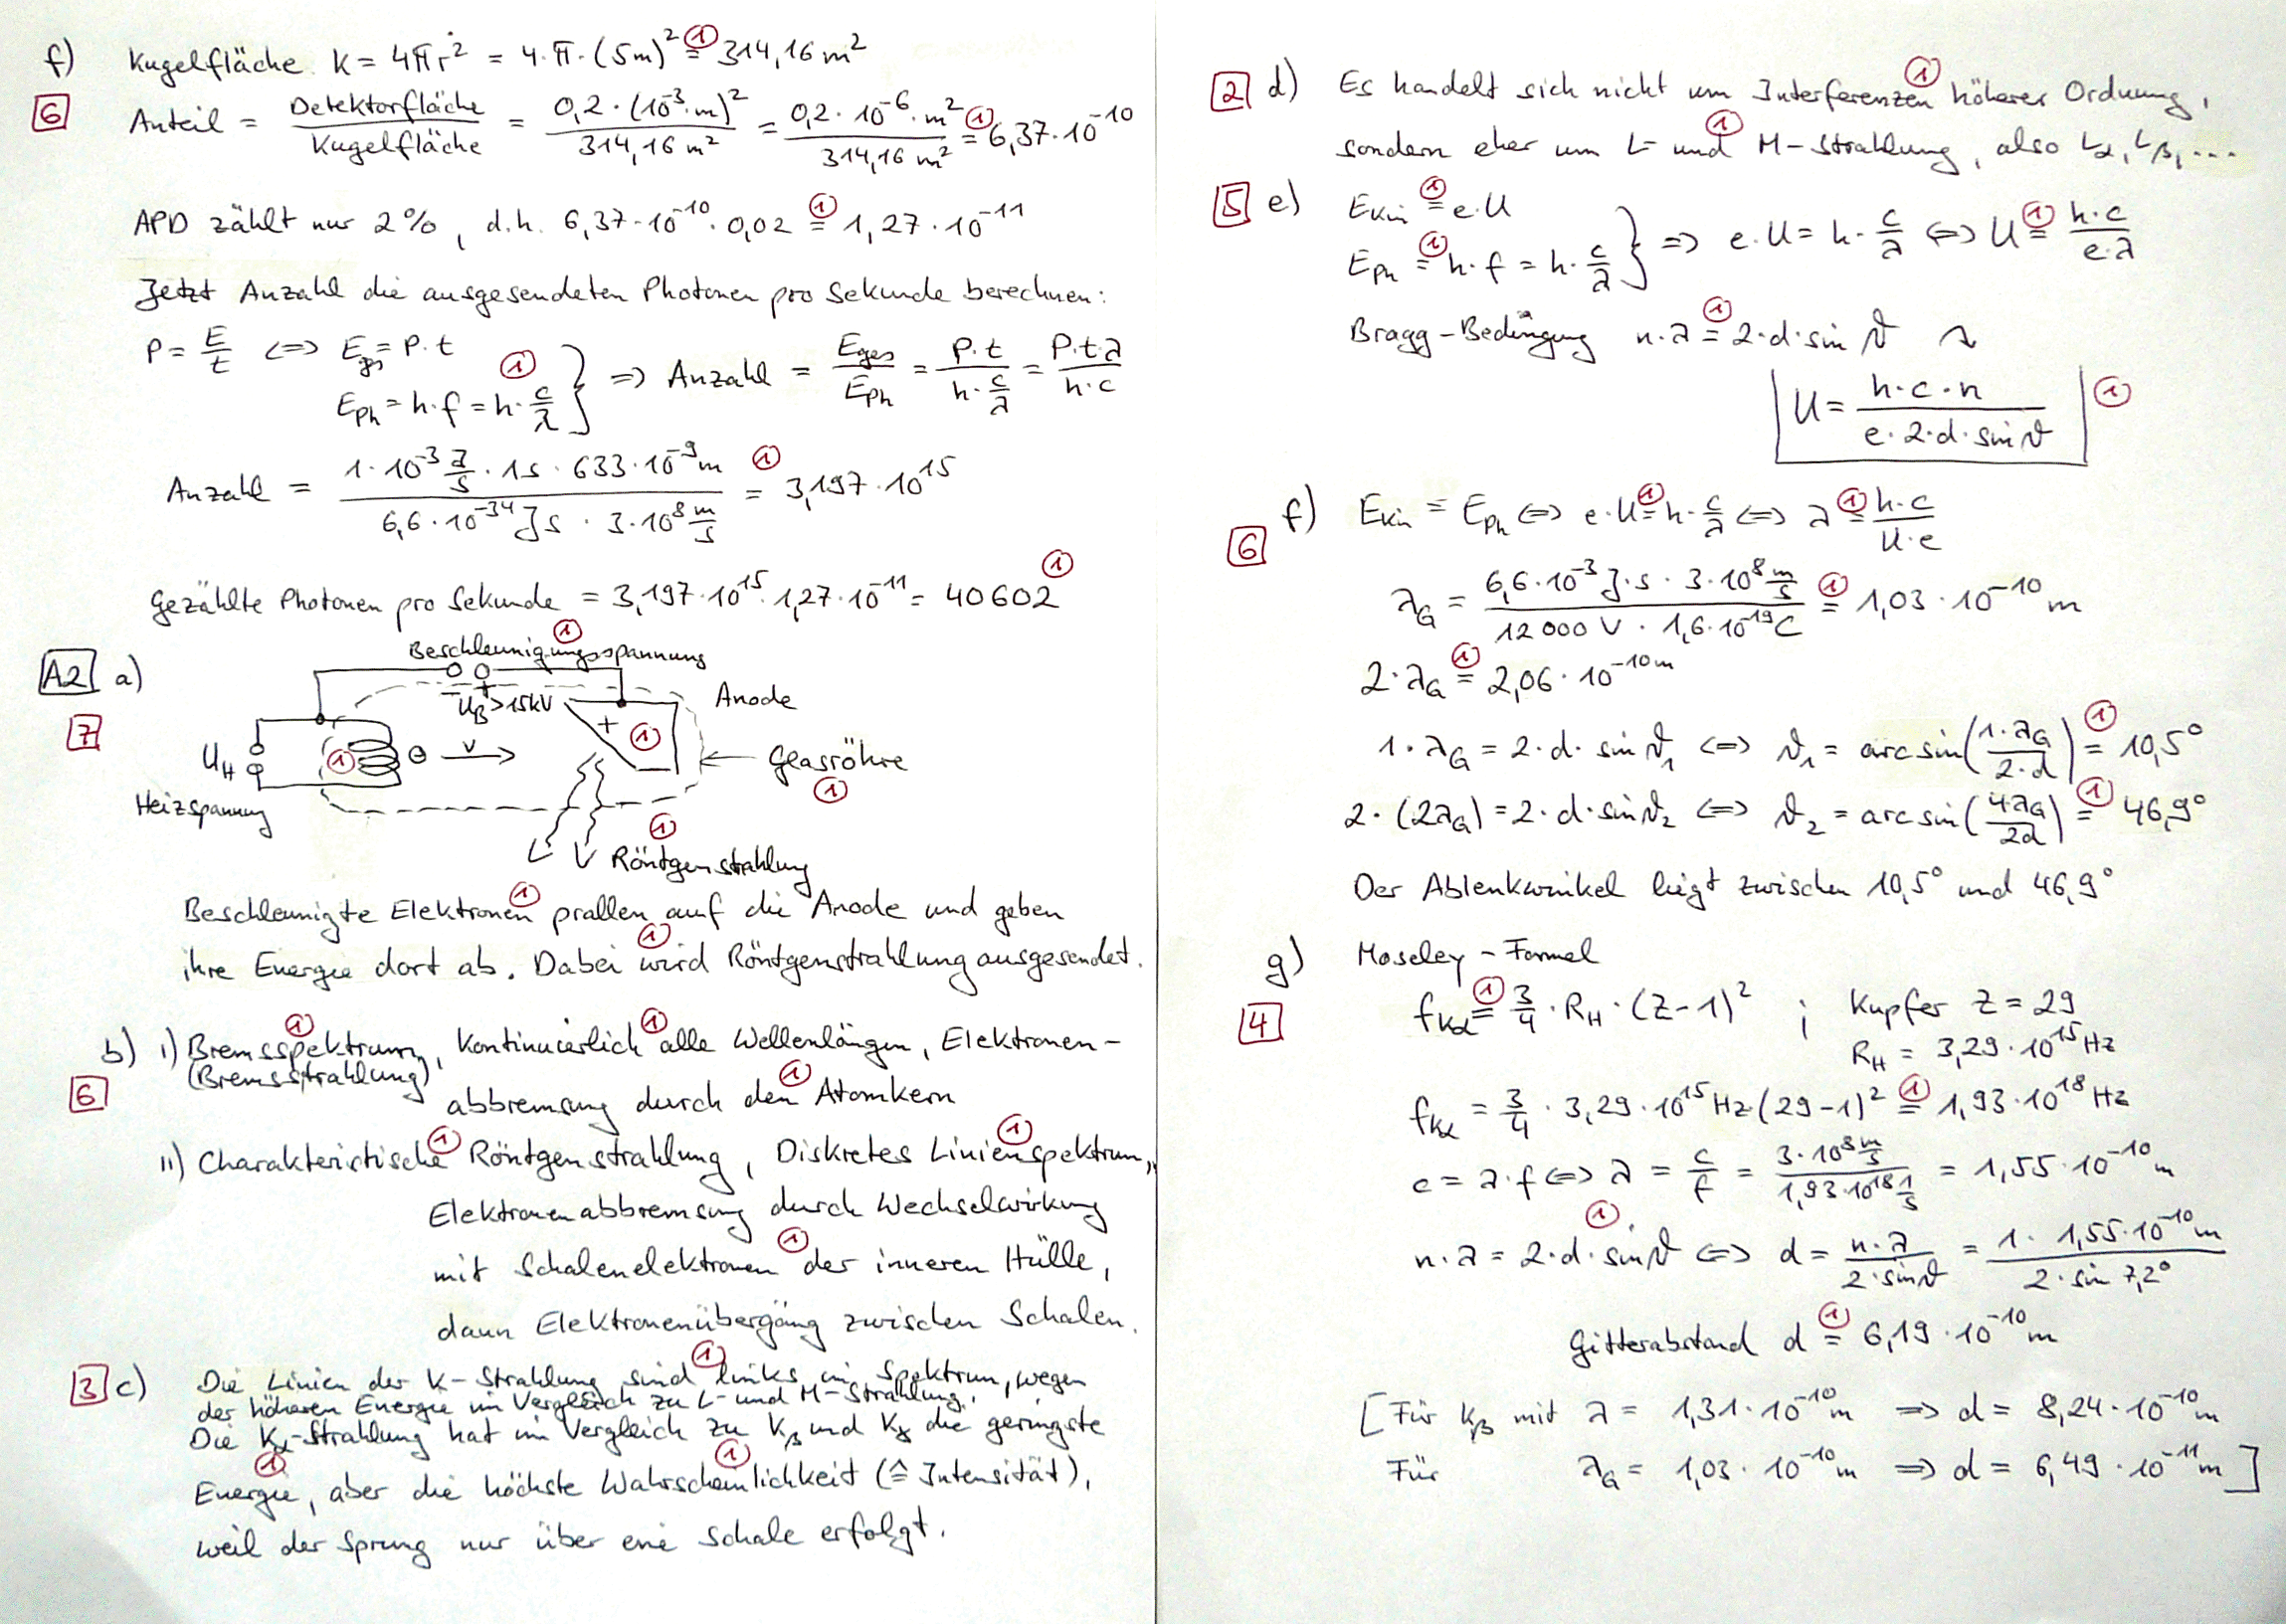 f) Kugelfläche K = 4πr² = 4·π·(5m)² = 314,16 m²
①
6
Anteil = Detektorfläche / Kugelfläche = 0,2·(10⁻³·m)² / 314,16 m² = 0,2·10⁻⁶·m² / 314,16 m² = 6,37·10⁻¹⁰
①
APD zählt nur 2%, d.h. 6,37·10⁻¹⁰·0,02 = 1,27·10⁻¹¹
①
Jetzt Anzahl die ausgesendeten Photonen pro Sekunde berechnen:
P = E/t <=> Eges = P·t
①
EPh = h·f = h·c/λ } => Anzahl = Eges/EPh = P·t / h·c/λ = P·t·λ / h·c
Anzahl = 1·10⁻³ J/s · 1s · 633·10⁻⁹m / 6,6·10⁻³⁴ Js · 3·10⁸ m/s = 3,197·10¹⁵
①
Gezählte Photonen pro Sekunde = 3,197·10¹⁵·1,27·10⁻¹¹ = 40602
①
A2 a)
7
Beschleunigungsspannung
①
− +
UB > 15kV
Anode
+ ①
UH
①
⊖ v
Glasröhre
①
Heizspannung
①
Röntgenstrahlung
Beschleunigte Elektronen prallen auf die Anode und geben
①
ihre Energie dort ab. Dabei wird Röntgenstrahlung ausgesendet.
①
b) i) Bremsspektrum, Kontinuierlich alle Wellenlängen, Elektronen-
① ①
(Bremsstrahlung)
6
abbremsung durch den Atomkern
①
ii) Charakteristische Röntgenstrahlung, Diskretes Linienspektrum,
① ①
Elektronenabbremsung durch Wechselwirkung
mit Schalenelektronen der inneren Hülle,
①
dann Elektronenübergäng zwischen Schalen.
3 c) Die Linien der K-Strahlung sind links im Spektrum, wegen
①
der höheren Energie im Vergleich zu L- und M-Strahlung.
Die Kα-Strahlung hat im Vergleich zu Kβ und Kγ die geringste
① ①
Energie, aber die höchste Wahrscheinlichkeit (≙ Intensität),
weil der Sprung nur über eine Schale erfolgt.
2 d) Es handelt sich nicht um Interferenzen höherer Ordnung,
①
sondern eher um L- und M-Strahlung, also Lα, Lβ, ...
①
5 e) Ekin = e·U
①
EPh = h·f = h·c/λ } => e·U = h·c/λ <=> U = h·c / e·λ
① ①
Bragg-Bedingung n·λ = 2·d·sin ϑ
①
U = h·c·n / e·2·d·sin ϑ
①
f) Ekin = EPh <=> e·U = h·c/λ <=> λ = h·c / U·e
① ①
6
λG = 6,6·10⁻³ J·s · 3·10⁸ m/s / 12000 V · 1,6·10⁻¹⁹ C = 1,03·10⁻¹⁰ m
①
2·λG = 2,06·10⁻¹⁰ m
①
1·λG = 2·d·sin ϑ₁ <=> ϑ₁ = arc sin(1·λG / 2·d) = 10,5°
①
2·(2λG) = 2·d·sin ϑ₂ <=> ϑ₂ = arc sin(4·λG / 2d) = 46,9°
①
Der Ablenkwinkel liegt zwischen 10,5° und 46,9°
g) Moseley-Formel
4
fKα = 3/4 · RH · (Z-1)² ; Kupfer Z = 29
①
RH = 3,29·10¹⁵ Hz
fKα = 3/4 · 3,29·10¹⁵ Hz (29-1)² = 1,93·10¹⁸ Hz
①
c = λ·f <=> λ = c/f = 3·10⁸ m/s / 1,93·10¹⁸ 1/s = 1,55·10⁻¹⁰ m
①
n·λ = 2·d·sin ϑ <=> d = n·λ / 2·sin ϑ = 1·1,55·10⁻¹⁰ m / 2·sin 7,2°
Gitterabstand d = 6,19·10⁻¹⁰ m
①
[Für Kβ mit λ = 1,31·10⁻¹⁰ m => d = 8,24·10⁻¹⁰ m
Für λG = 1,03·10⁻¹⁰ m => d = 6,49·10⁻¹¹ m]